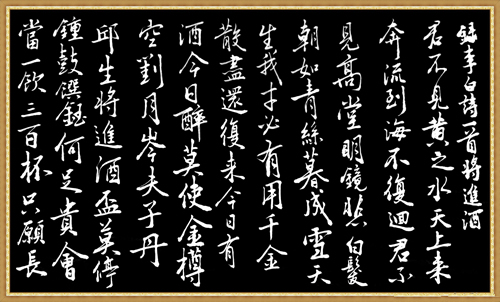 録李白詩一首將進酒
君不見黄之水天上来
奔流到海不復迴君不
見高堂明鏡悲白髮
朝如青絲暮成雪天
生我才必有用千金
散盡還復来今日有
酒今日醉莫使金樽
空對月岑夫子丹
邱生將進酒盃莫停
鍾鼓饌鈺何足貴會
當一飲三百杯只願長